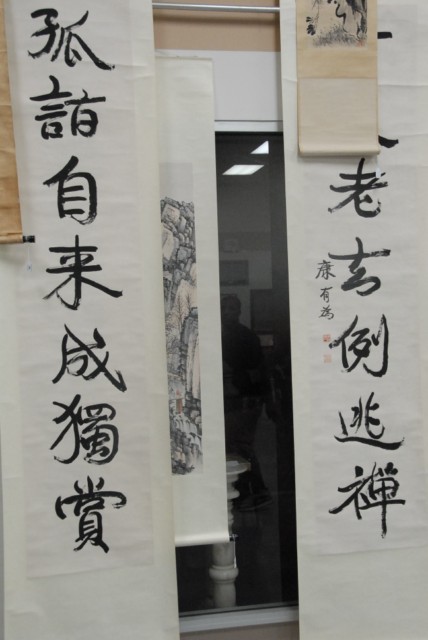 老去例逃禪
康有為
孤詣自来成獨賞